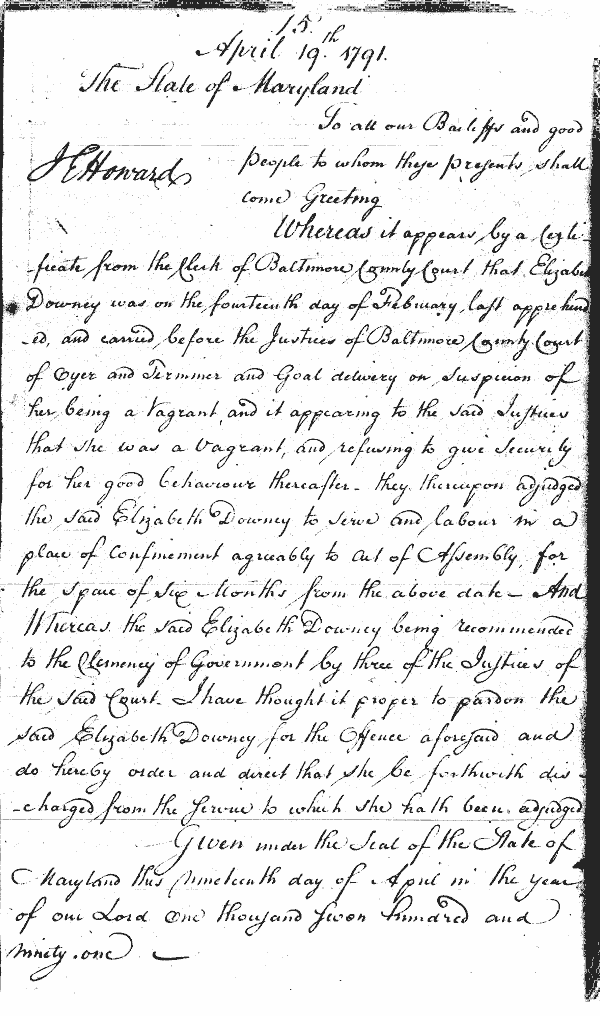 15.
April 19th. 1791.
The State of Maryland
To all our Bailiffs and good
J E Howard people to whom these presents shall
come Greeting
Whereas it appears by a Certi-
-ficate from the Clerk of Baltimore County Court that Elizabeth
Downey was on the fourteenth day of February last apprehend
-ed, and carried before the Justices of Baltimore County Court
of Oyer and Terminer and Goal delivery on suspicion of
her being a Vagrant, and it appearing to the said Justices
that she was a Vagrant, and refusing to give Security
for her good behaviour thereafter - they thereupon adjudged
the said Elizabeth Downey to serve and labour in a
place of Confinement agreably to act of Assembly, for
the space of six Months from the above date - And
Whereas the said Elizabeth Downey being recommended
to the Clemency of Government by three of the Justices of
the said Court. I have thought it proper to pardon the
said Elizabeth Downey for the Offence aforesaid and
do hereby order and direct that she be forthwith dis-
-charged from the Servue to which she hath been adjudged
Given under the Seal of the State of
Maryland this nineteenth day of April in the year
of our Lord One thousand Seven hundred and
ninety one —